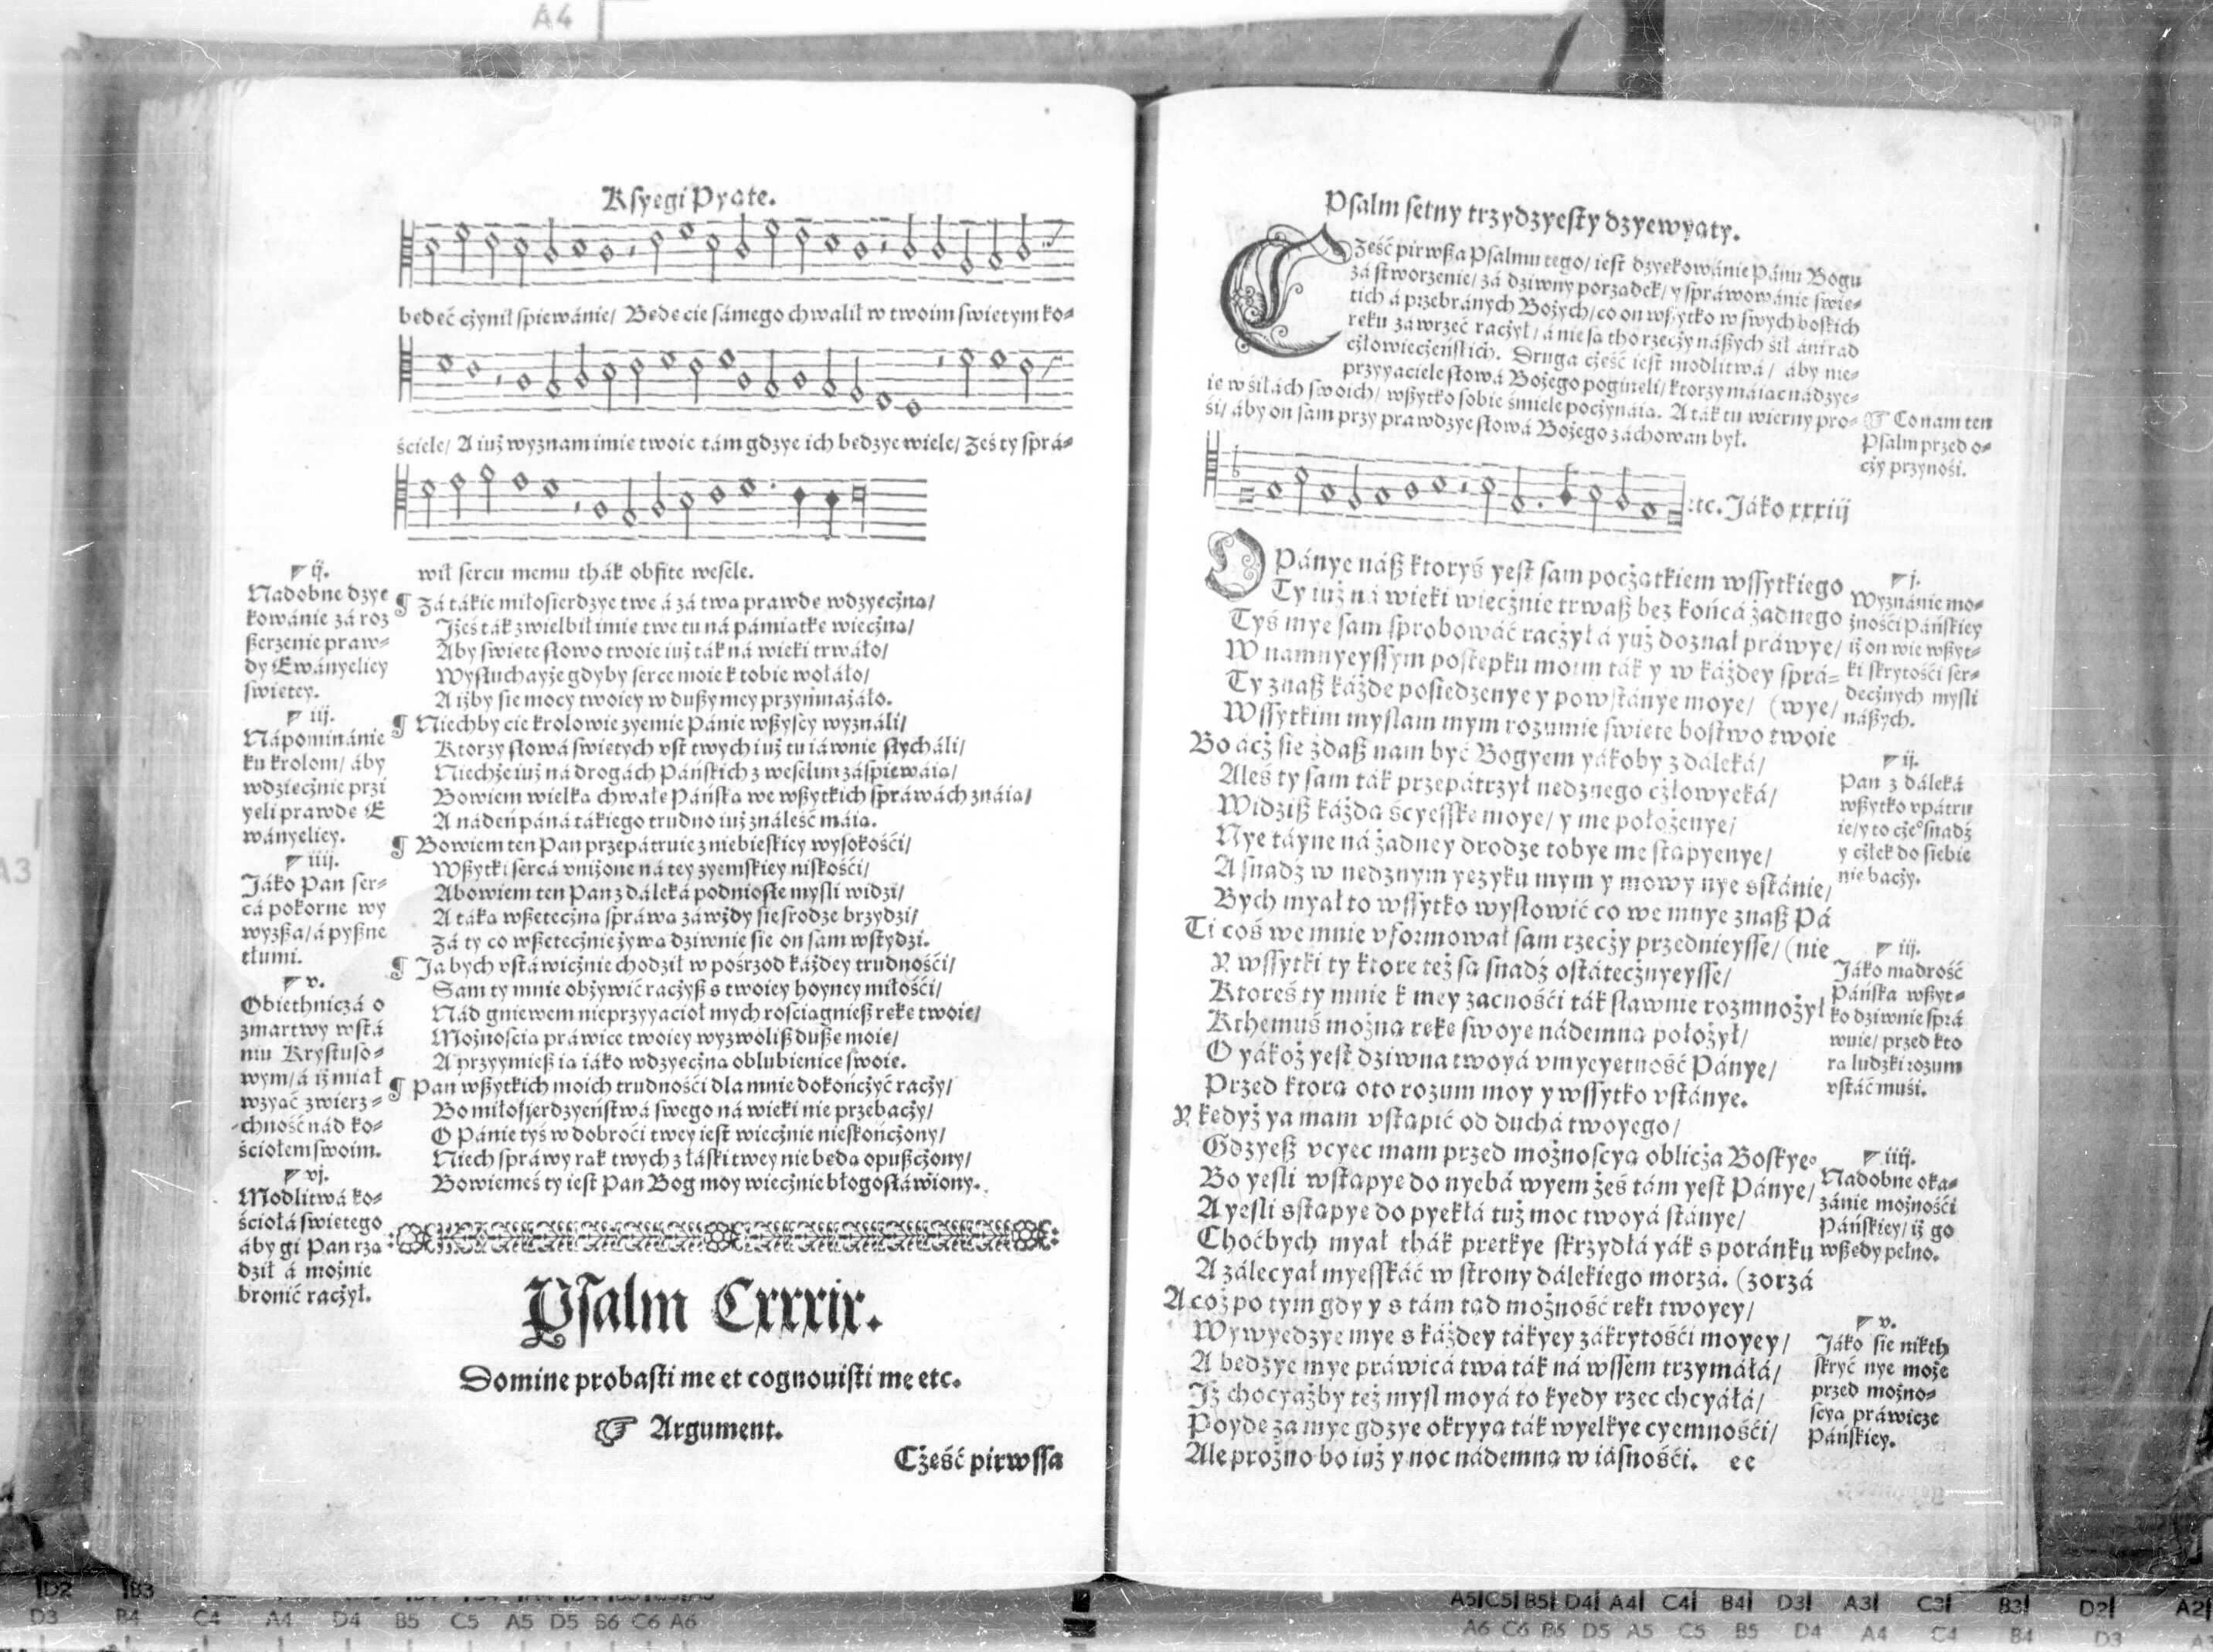 Ksyegi Pyąte.
bedeć cżynił spiewánie/ Bede cie sámego chwalił w twoim swietym ko-
ściele/ A iuż wyznam imie twoie tám gdzye ich bedzye wiele/ Żeś ty sprá-
wił sercu memu thák obfite wesele.
ij.
Nadobne dzye
kowánie zá roz
ßerzenie praw-
dy Ewányeliey
swietey.
iij.
Nápominánie
ku krolom/ áby
wdziecżnie przi
yeli prawde E
wányeliey.
iiij.
Jáko Pan ser-
cá pokorne wy
wyzßa/ á pyßne
tłumi.
v.
Obiethniczá o
zmartwy wstá
niu Krystuso-
wym/ á iż miał
wzyąć zwierz-
chność nád ko-
ściołem swoim.
vj.
Modlitwá ko-
ściołá swietego
áby gi Pan rzą
dził á możnie
bronić racżył.
¶ Zá tákie miłosierdzye twe á zá twą prawde wdzyecżną/
Jżeś ták zwielbił imie twe tu ná pámiątke wiecżną/
Aby swiete słowo twoie iuż ták ná wieki trwáło/
Wysłuchayże gdyby serce moie k tobie wołáło/
A iżby sie mocy twoiey w dußy mey przymnażáło.
¶ Niechby cie krolowie zyemie Pánie wßyscy wyználi/
Ktorzy słowá swietych vst twych iuż tu iáwnie słycháli/
Niechże iuż ná drogách Páńskich z weselim záspiewáią/
Bowiem wielką chwałe Páńską we wßytkich spráwách znáią/
A nádeń páná tákiego trudno iuż ználeść máią.
¶ Bowiem ten Pan przepátruie z niebieskiey wysokości/
Wßytki sercá vniżone ná tey zyemskiey niskości/
Abowiem ten Pan z dáleká podniosłe mysli widzi/
A táką wßetecżną spráwą záwżdy sie srodze brzydzi/
Zá ty co wßetecżnie żywą dziwnie sie on sam wstydzi.
¶ Ja bych vstáwicżnie chodził w pośrzod káżdey trudności/
Sam ty mnie obżywić racżyß s twoiey hoyney miłości/
Nád gniewem nieprzyyacioł mych rosciągnieß reke twoie/
Możnoscią práwice twoiey wyzwoliß duße moie/
A przyymieß ią iáko wdzyecżną oblubienice swoie.
¶ Pan wßytkich moich trudności dla mnie dokończyć racży/
Bo miłosierdzyeństwá swego ná wieki nie przebacży/
O Pánie tyś w dobroci twey iest wiecżnie nieskończony/
Niech spráwy rąk twych z łáski twey nie bedą opußcżony/
Bowiemeś ty iest Pan Bog moy wiecżnie błogosłáwiony.
Psalm Cxxxix.
Domine probasti me et cognouisti me etc.
Argument.
Cżeść pirwssa
Psalm setny trzydzyesty dzyewyąty.
CZeść pirwßa Psalmu tego/ iest dzyekowánie Pánu Bogu
zá stworzenie/ zá dziwny porządek/ y spráwowánie swie-
tich á przebránych Bożych/ co on wßytko w swych boskich
reku záwrzeć racżył/ á nie są tho rzecży náßych sił áni rad
cżłowiecżeńskich. Druga cżeść iest modlitwá/ áby nie-
przyyaciele słowá Bożego pogineli/ ktorzy máiąc nádzye-
ie w siłách swoich/ wßytko sobie śmiele pocżynáią. A ták tu wierny pro-
si/ áby on sam przy prawdzye słowá Bożego záchowan był.
Co nam ten
Psalm przed o-
cży przynosi.
:tc. Jáko xxxiij
O Pánye náß ktoryś yest sam pocżątkiem wssytkiego
Ty iuż ná wieki wiecżnie trwaß bez końcá żadnego
Tyś mye sam sprobowáć racżył á yuż doznał práwye/
W namnyeyssym postepku moim ták y w káżdey sprá-
Ty znaß káżde posiedzenye y powstánye moye/ (wye/
Wssytkim myslam mym rozumie swiete bostwo twoie
Bo ácż sie zdaß nam być Bogyem yákoby z dáleká/
Aleś ty sam ták przepátrzył nedznego cżłowyeká/
Widziß káżdą ścyesske moye/ y me położenye/
Nye táyne ná żadney drodze tobye me stąpyenye/
A snadź w nedznym yezyku mym y mowy nye sstánie/
Bych myał to wssytko wysłowić co we mnye znaß Pá
Ti coś we mnie vformował sam rzecży przednieysse/ (nie
Y wssytki ty ktore też są snadź ostátecżnyeysse/
Ktoreś ty mnie k mey zacności ták sławnie rozmnożył
Kthemuś możną reke swoye nádemną położył/
O yákoż yest dziwna twoyá vmyeyetność Pánye/
Przed ktorą oto rozum moy y wssytko vstánye.
Y kedyż ya mam vstąpić od duchá twoyego/
Gdzyeß vcyec mam przed możnoscyą oblicża Boskye°
Bo yesli wstąpye do nyebá wyem żeś tám yest Pánye/
A yesli sstąpye do pyekłá tuż moc twoyá stánye/
Choćbych myał thák pretkye skrzydłá yák s poránku
A zálecyał myesskáć w strony dálekiego morzá. (zorzá
A coż po tym gdy y s tám tąd możność reki twoyey/
Wywyedzye mye s káżdey tákyey zákrytości moyey/
A bedzye mye práwicá twa ták ná wssem trzymáłá/
Jż chocyażby też mysl moyá to kyedy rzec chcyáłá/
Poyde zá mye gdzye okryyą ták wyelkye cyemności/
Ale prożno bo iuż y noc nádemną w iásności. ee
j.
Wyznánie mo-
żności Páńskiey
iż on wie wßyt-
ki skrytości ser-
decżnych mysli
náßych.
ij.
Pan z dáleká
wßytko vpátru
ie/ y to cże° snadź
y cżłek do siebie
nie bacży.
iij.
Jáko mądrość
Páńska wßyt-
ko dziwnie sprá
wuie/ przed kto
rą ludzki rozum
vstáć musi.
iiij.
Nadobne oka-
zánie możności
Páńskiey/ iż go
wßedy pełno.
v.
Jáko sie nikth
skryć nye może
przed możno-
scyą práwicze
Páńskiey.
A4
A3
D2 B3
D3 B4 C4 A4 D4 B5 C5 A5 D5 B6 C6 A6
A5 C5 B5 D4 A4 C4 B4 D3 A3 C3 B3 D2 A2
A6 C6 B6 D5 A5 C5 B5 D4 A4 C4 B4 D3